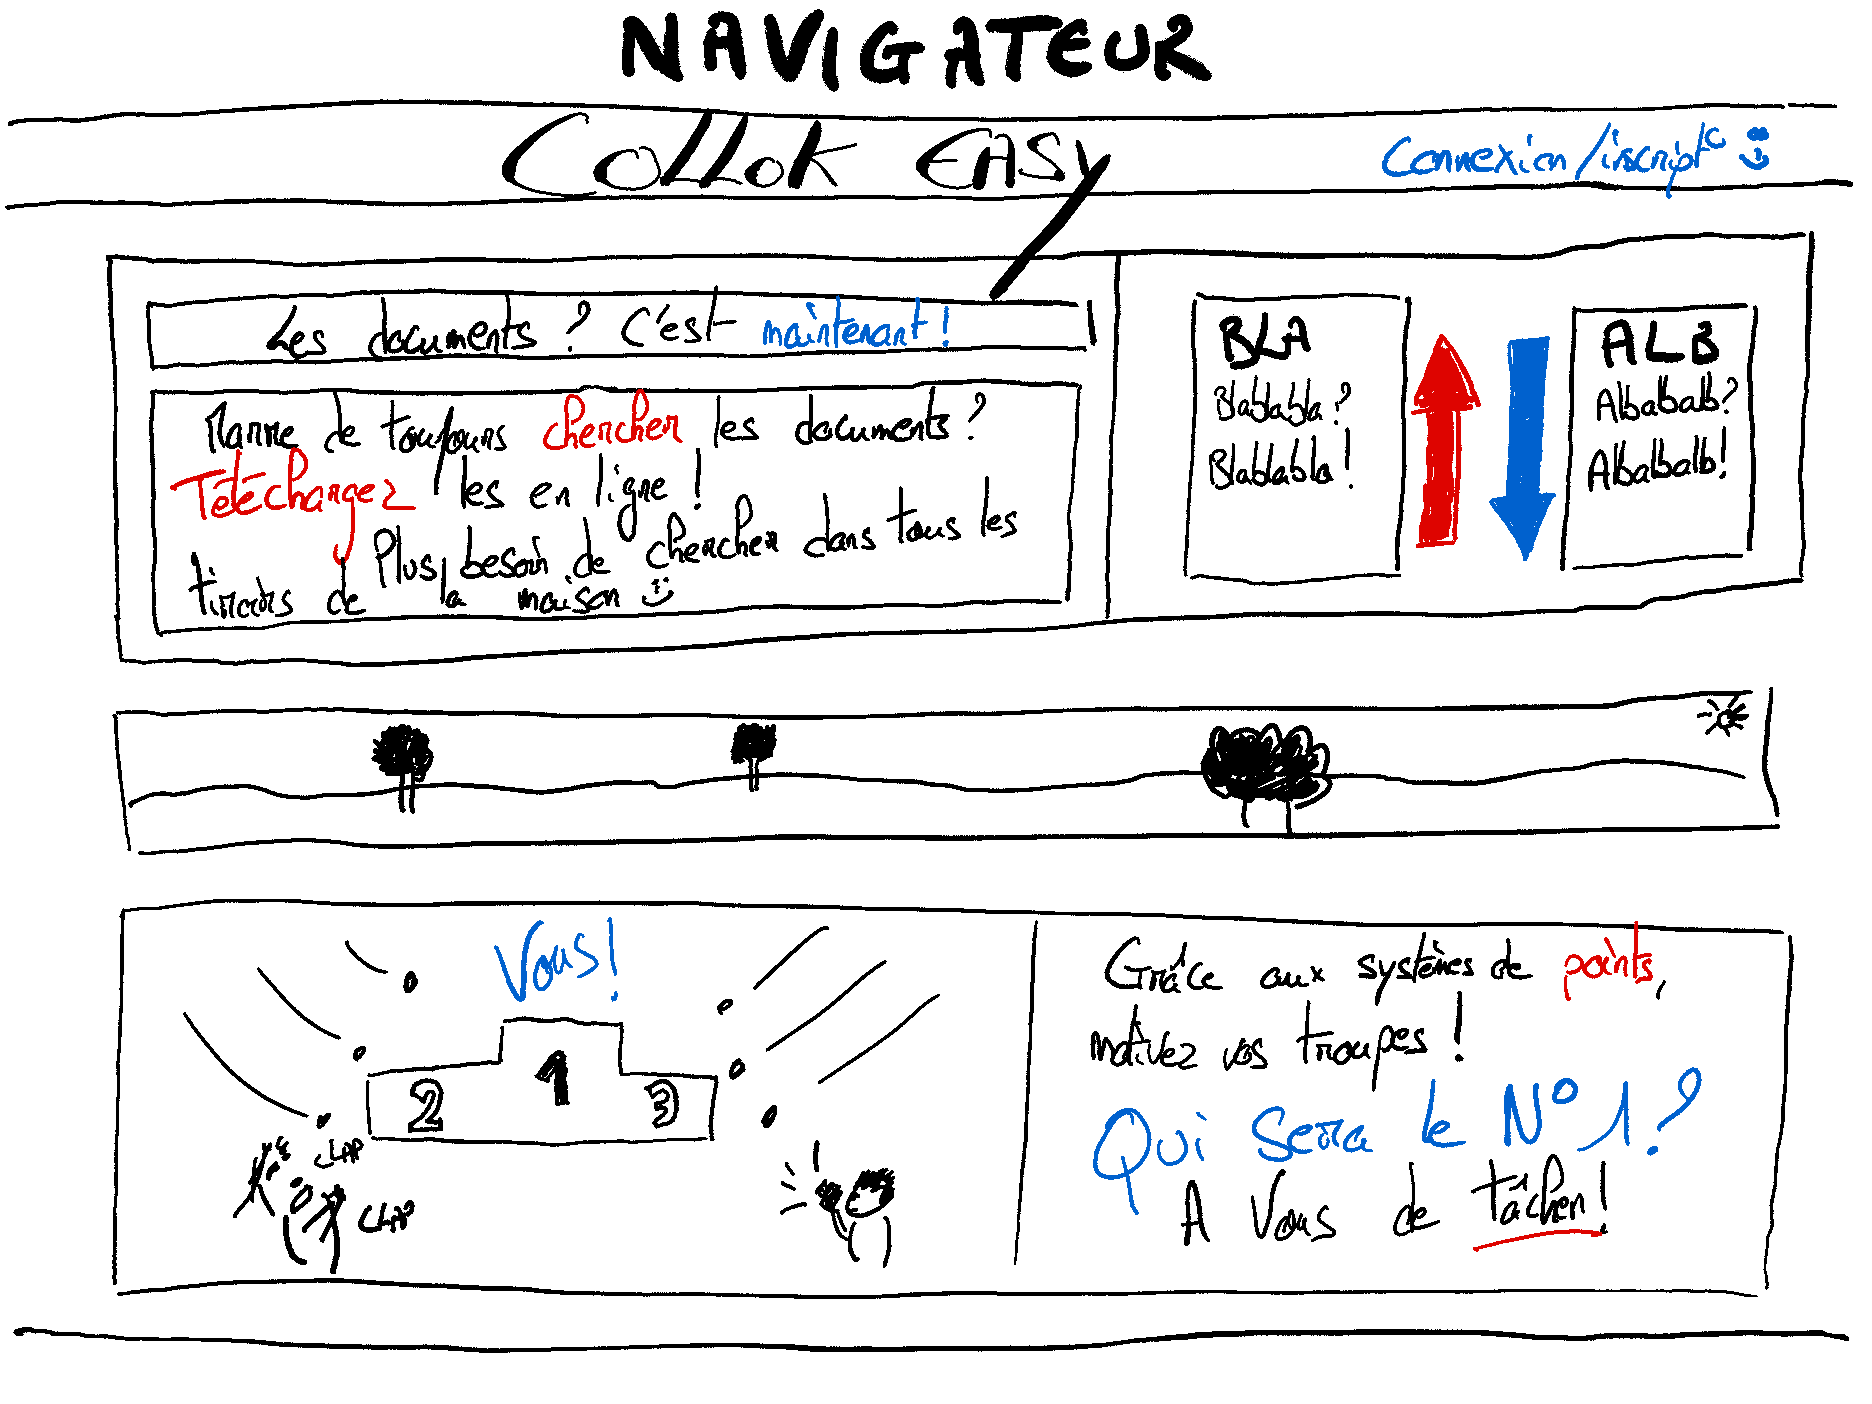 NAVIGATEUR
COLLOK EASY
Connexion/inscript°
Les documents ? C'est maintenant !
Marre de toujours chercher les documents ?
Téléchargez les en ligne !
Plus besoin de chercher dans tous les
tiroirs de la maison :)
BLA
Blablabla ?
Blablabla !
ALB
Albalbalb ?
Albalbalb !
Vous !
2 1 3
CLAP
CLAP
Grâce aux systèmes de points,
motivez vos troupes !
Qui sera le N° 1 ?
A Vous de tâcher !